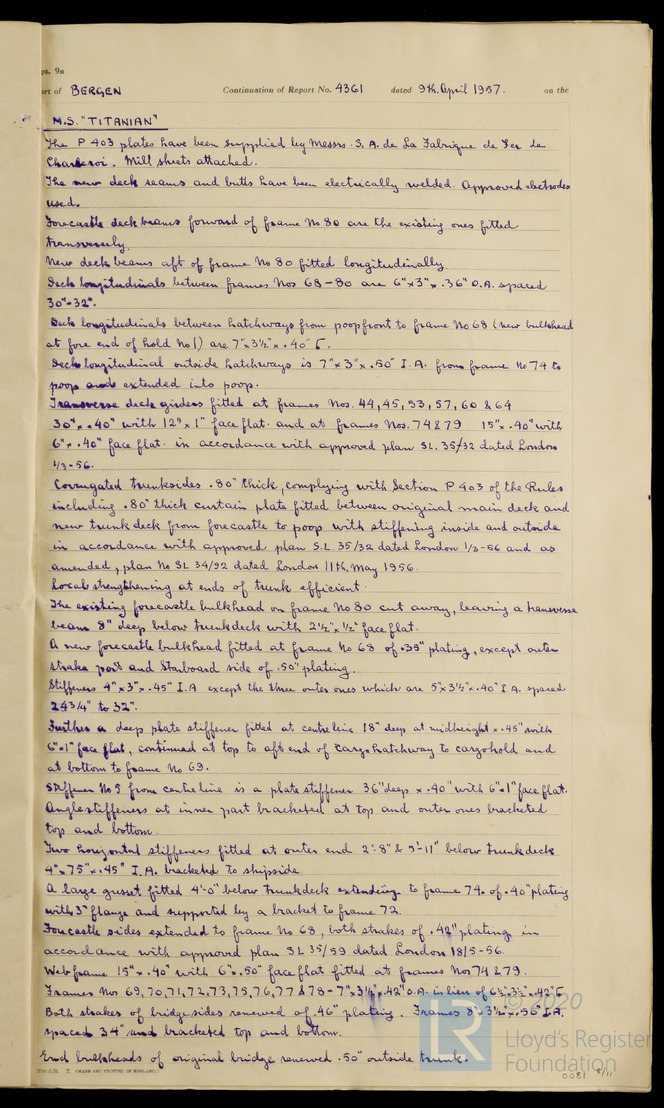 9a
BERGEN Continuation of Report No. 4361 dated 9th. April 1957. on the
M.S. "TITANIAN"
The P 403 plates have been supplied by Messrs. S. A. de La Fabrique de Fer de
Charleroi. Mill sheets attached.
The new deck seams and butts have been electrically welded. Approved electrodes
used.
Forecastle deck beams forward of frame No 80 are the existing ones fitted
transversely.
New deck beams aft of frame No 80 fitted longitudinally.
Deck longitudinals between frames Nos 68-80 are 6"x3"x.36" O.A. spaced
30"-32".
Deck longitudinals between hatchways from poopfront to frame No 68 (new bulkhead
at fore end of hold No 1) are 7"x3½"x.40" [.
Deck longitudinal outside hatchways is 7"x3"x.50" I.A. from frame No 74 to
poop and extended into poop.
Transverse deck girders fitted at frames Nos. 44, 45, 53, 57, 60 & 64
30"x.40" with 12"x1" face flat. and at frames Nos. 74 & 79 15"x.40" with
6"x.40" face flat. in accordance with approved plan SL. 35/32 dated London
1/3-56.
Corrugated trunksides .80" thick, complying with Section P 403 of the Rules
including .80" thick curtain plate fitted between original main deck and
new trunk deck from forecastle to poop with stiffening inside and outside
in accordance with approved plan S.L. 35/32 dated London 1/3-56 and as
amended, plan No SL 34/92 dated London 11th. May 1956.
Local strengthening at ends of trunk efficient.
The existing forecastle bulkhead on frame No 80 cut away, leaving a transverse
beam 8" deep below trunkdeck with 2½"x½" face flat.
A new forecastle bulkhead fitted at frame No 68 of .39" plating, except outer
strake port and Starboard side of .50" plating.
Stiffeners 4"x3"x.45" I.A except the three outer ones which are 5"x3½"x.40" I.A. spaced
24¾" to 32".
Further a deep plate stiffener fitted at centreline 18" deep at midheight x.45" with
6"x1" face flat, continued at top to aft end of cargohatchway to cargohold and
at bottom to frame No 69.
Stiffener No 5 from centreline is a plate stiffener 36" deep x.40" with 6"x1" face flat.
Anglestiffeners at inner part bracketed at top and outer ones bracketed
top and bottom.
Two horizontal stiffeners fitted at outer end 2'-8" & 5'-11" below trunkdeck
4"x.75"x.45" I.A. bracketed to shipside
A large gusset fitted 4'-0" below trunkdeck extending to frame 74. of .40" plating
with 3" flange and supported by a bracket to frame 72.
Forecastle sides extended to frame No 68, both strakes of .42" plating in
accordance with approved plan SL 35/59 dated London 18/5-56.
Webframe 15"x.40" with 6"x.50" face flat fitted at frames Nos 74 & 79.
Frames Nos 69, 70, 71, 72, 73, 75, 76, 77 & 78 - 7"x3½"x.42" O.A. in lieu of 6½"x3½"x.42" [
Both strakes of bridge sides renewed of .46" plating. Frames 8"x3½"x.56" I.A.
spaced 34" and bracketed top and bottom.
End bulkheads of original bridge renewed .50" outside trunk.
(MADE AND PRINTED IN ENGLAND.)
© 2020
LR
Lloyd's Register
Foundation
0081 9/11